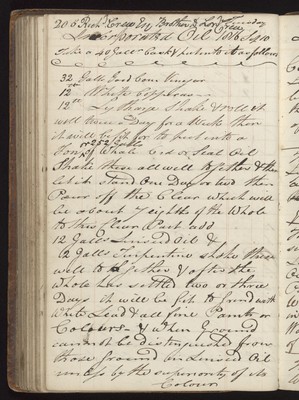 20 Richd Crew Esq Brother to Lord
Incorporated Oil
Take a 40 Galln Cask & put into it as follows
32 Galls Good Com Vinegar
12 lb White Copperas
12 lb Lytharge Shake & roll it
well twice a Day for a Week then
it will be fit for to put into a
or 252 Galls
Ton of Whale Cod or Seal Oil
Shake them all well together & then
let it Stand One Day or two then
Pour off the Clear which will
be about 7 eighths of the Whole
to this Clear Part add
12 Galls Linseed Oil &
2 Galls Turpentine shake them
well together & after the
whole has settled two or three
Days it will be fit to grind with
White Lead & all fine Paints or
Colours - & when ground
cannot be distinguished from
those ground in Linseed Oil
unless by the superiority of its
Colour